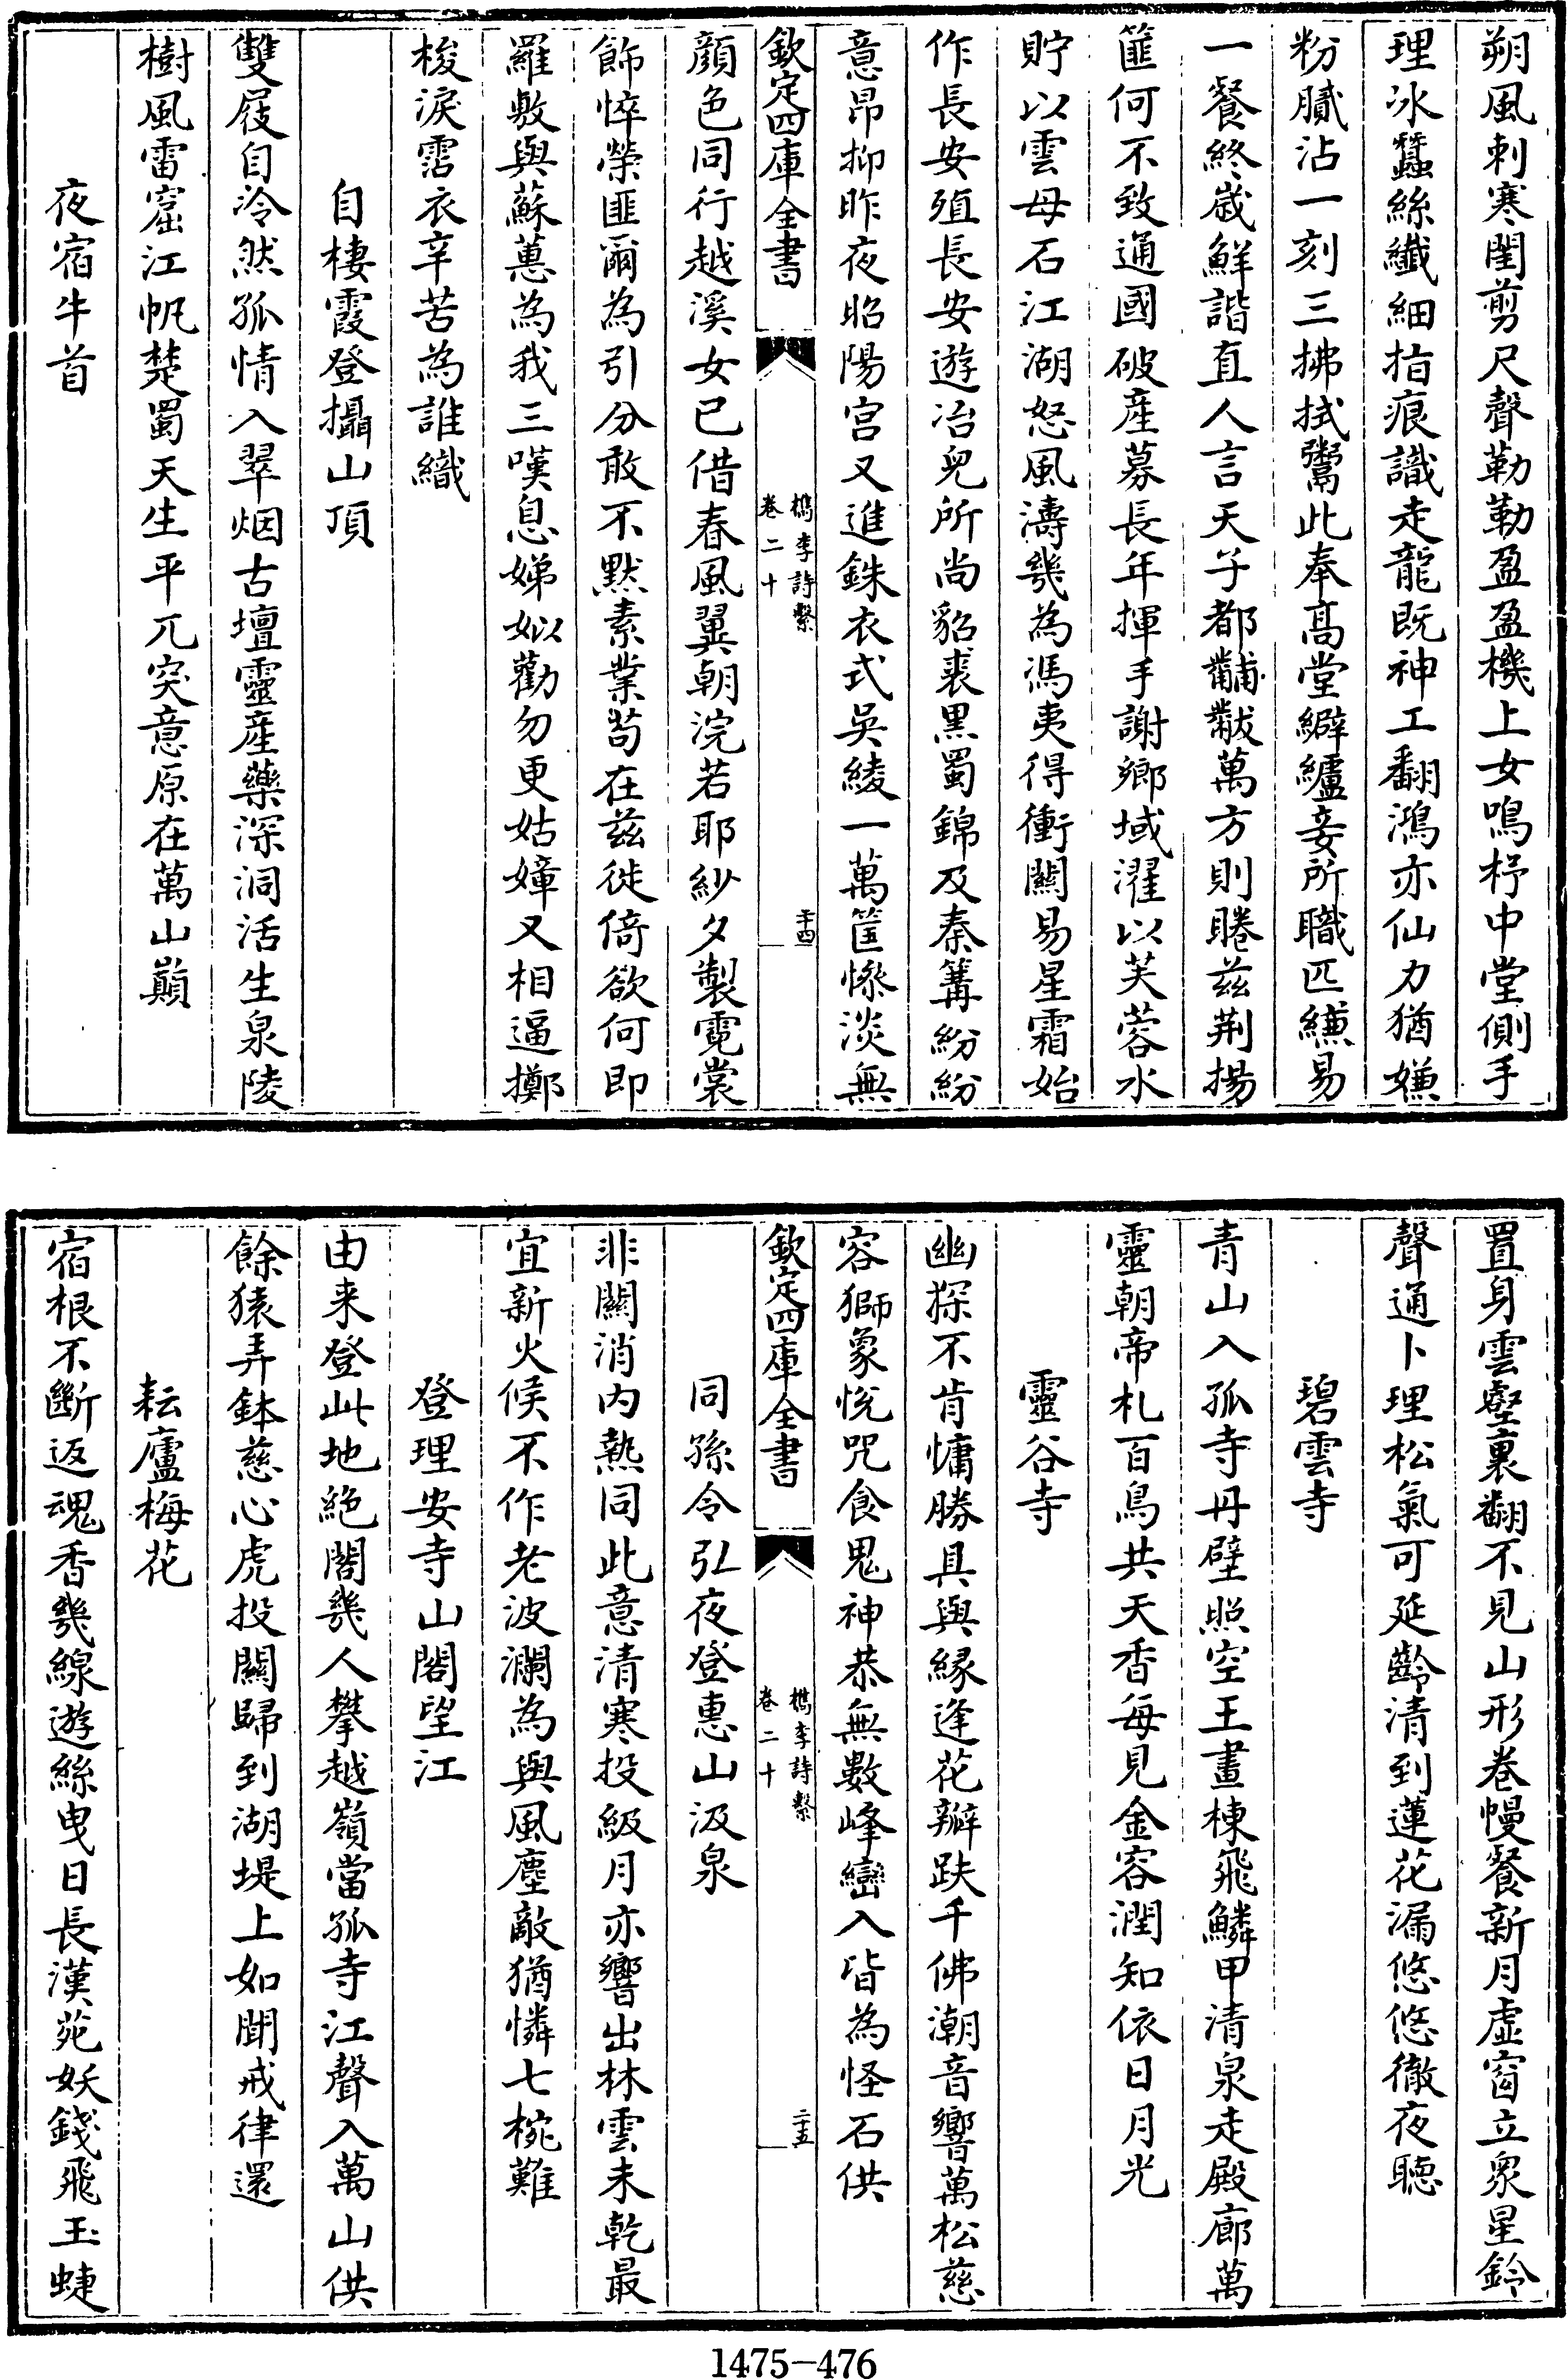 朔風刺寒閨剪尺聲勒勒盈盈機上女鳴杼中堂側手
理冰蠶絲纖細指痕識走龍既神工翻鴻亦仙力猶嫌
粉膩沾一刻三拂拭鬻此奉髙堂繲纑妾所職匹縑易
一餐終嵗鮮諧直人言天子都黼黻萬方則睠兹荆揚
篚何不致通國破産募長年揮手謝鄉域濯以芙蓉水
貯以雲母石江湖怒風濤幾為馮夷得衝闗易星霜始
作長安殖長安遊冶兒所尚貂裘黒蜀錦及秦篝紛紛
意昂抑昨夜昭陽宫又進銖衣式吳綾一萬筐慘淡無
欽定四庫全書
檇李詩繫
卷二十
二十四
顔色同行越溪女已借春風翼朝浣若耶紗夕製霓裳
飾悴榮匪爾為引分敢不黙素業茍在兹徙倚欲何即
羅敷與蘇蕙為我三嘆息娣姒勸勿更姑嫜又相逼擲
梭淚霑衣辛苦為誰織
自棲霞登攝山頂
雙屐自泠然孤情入翠烟古壇靈産藥深洞活生泉陵
樹風雷窟江帆楚蜀天生平兀突意原在萬山巔
夜宿牛首
置身雲壑裏翻不見山形卷幔餐新月虚窗立衆星鈴
聲通卜理松氣可延齡清到蓮花漏悠悠徹夜聽
碧雲寺
青山入孤寺丹壁照空王畫棟飛鱗甲清泉走殿廊萬
靈朝帝札百鳥共天香每見金容潤知依日月光
靈谷寺
幽探不肯慵勝具與縁逢花瓣趺千佛潮音響萬松慈
容獅象悅咒食鬼神恭無數峰巒入皆為怪石供
欽定四庫全書
檇李詩繫
卷二十
二十五
同孫令弘夜登惠山汲泉
非闗消内熱同此意清寒投級月亦響出林雲未乾最
宜新火候不作老波瀾為與風塵敵猶憐七椀難
登理安寺山閣望江
由来登此地絶閣幾人攀越嶺當孤寺江聲入萬山供
餘猿弄鉢慈心虎投闗歸到湖堤上如聞戒律還
耘廬梅花
宿根不斷返魂香幾線遊絲曳日長漢苑妖錢飛玉蜨
1475-476